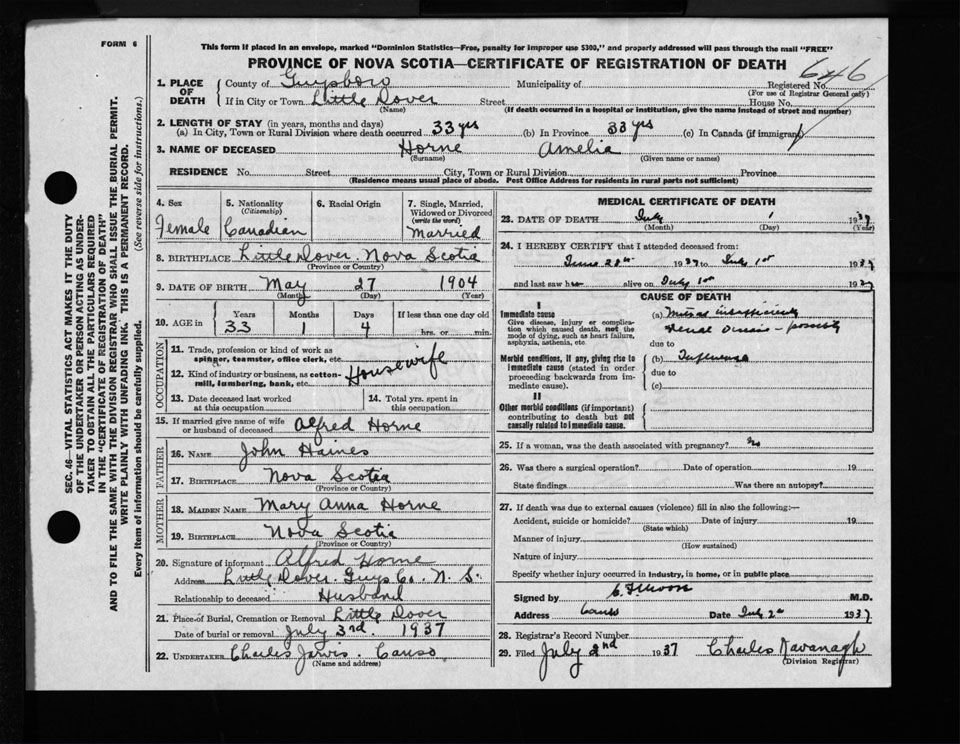 FORM 6
This form if placed in an envelope, marked "Dominion Statistics—Free, penalty for improper use $300," and properly addressed will pass through the mail "FREE"
PROVINCE OF NOVA SCOTIA—CERTIFICATE OF REGISTRATION OF DEATH
646
1. PLACE OF DEATH County of Guysboro Municipality of Registered No.
(For use of Registrar General only)
If in City or Town Little Dover Street House No.
(Name) (If death occurred in a hospital or institution, give the name instead of street and number)
2. LENGTH OF STAY (in years, months and days)
(a) In City, Town or Rural Division where death occurred 33 yrs (b) In Province 33 yrs (c) In Canada (if immigrant)
3. NAME OF DECEASED Horne Amelia
(Surname) (Given name or names)
RESIDENCE No. Street City, Town or Rural Division Province
(Residence means usual place of abode. Post Office Address for residents in rural parts not sufficient)
SEC. 46—VITAL STATISTICS ACT MAKES IT THE DUTY
OF THE UNDERTAKER OR PERSON ACTING AS UNDER-
TAKER TO OBTAIN ALL THE PARTICULARS REQUIRED
IN THE "CERTIFICATE OF REGISTRATION OF DEATH"
AND TO FILE THE SAME WITH THE DIVISION REGISTRAR WHO SHALL ISSUE THE BURIAL PERMIT.
WRITE PLAINLY WITH UNFADING INK. THIS IS A PERMANENT RECORD.
Every item of information should be carefully supplied. (See reverse side for instructions.)
4. Sex 5. Nationality 6. Racial Origin 7. Single, Married,
(Citizenship) Widowed or Divorced
(write the word)
Female Canadian Married
8. BIRTHPLACE Little Dover Nova Scotia
(Province or Country)
9. DATE OF BIRTH May 27 1904
(Month) (Day) (Year)
10. AGE in Years Months Days If less than one day old
33 1 4 hrs. or min.
OCCUPATION
11. Trade, profession or kind of work as
spinner, teamster, office clerk, etc.
Housewife
12. Kind of industry or business, as cotton-
mill, lumbering, bank, etc.
13. Date deceased last worked
at this occupation
14. Total yrs. spent in
this occupation
15. If married give name of wife
or husband of deceased Alfred Horne
FATHER
16. NAME John Haines
17. BIRTHPLACE Nova Scotia
(Province or Country)
MOTHER
18. MAIDEN NAME Mary Anna Horne
19. BIRTHPLACE Nova Scotia
(Province or Country)
20. Signature of informant Alfred Horne
Address Little Dover Guys Co. N. S.
Relationship to deceased Husband
21. Place of Burial, Cremation or Removal Little Dover
Date of burial or removal July 3rd. 1937
22. UNDERTAKER Charles Jarvis. Canso
(Name and address)
MEDICAL CERTIFICATE OF DEATH
23. DATE OF DEATH July 1 1937
(Month) (Day) (Year)
24. I HEREBY CERTIFY that I attended deceased from:
June 28th 1937 to July 1st 1937
and last saw her alive on July 1st 1937
CAUSE OF DEATH
I
Immediate cause
Give disease, injury or complica-
tion which caused death, not the
mode of dying, such as heart failure,
asphyxia, asthenia, etc.
(a) Mitral insufficiency
due to
Morbid conditions, if any, giving rise to
immediate cause (stated in order
proceeding backwards from im-
mediate cause).
(b) Influenza
due to
(c)
II
Other morbid conditions (if important)
contributing to death but not
causally related to immediate cause.
25. If a woman, was the death associated with pregnancy? No
26. Was there a surgical operation? Date of operation 19
State findings Was there an autopsy?
27. If death was due to external causes (violence) fill in also the following:—
Accident, suicide or homicide? Date of injury 19
(State which)
Manner of injury
(How sustained)
Nature of injury
Specify whether injury occurred in industry, in home, or in public place
Signed by M.D.
Address Canso Date July 2nd 1937
28. Registrar's Record Number
29. Filed July 2nd 1937 Charles Kavanagh
(Division Registrar)